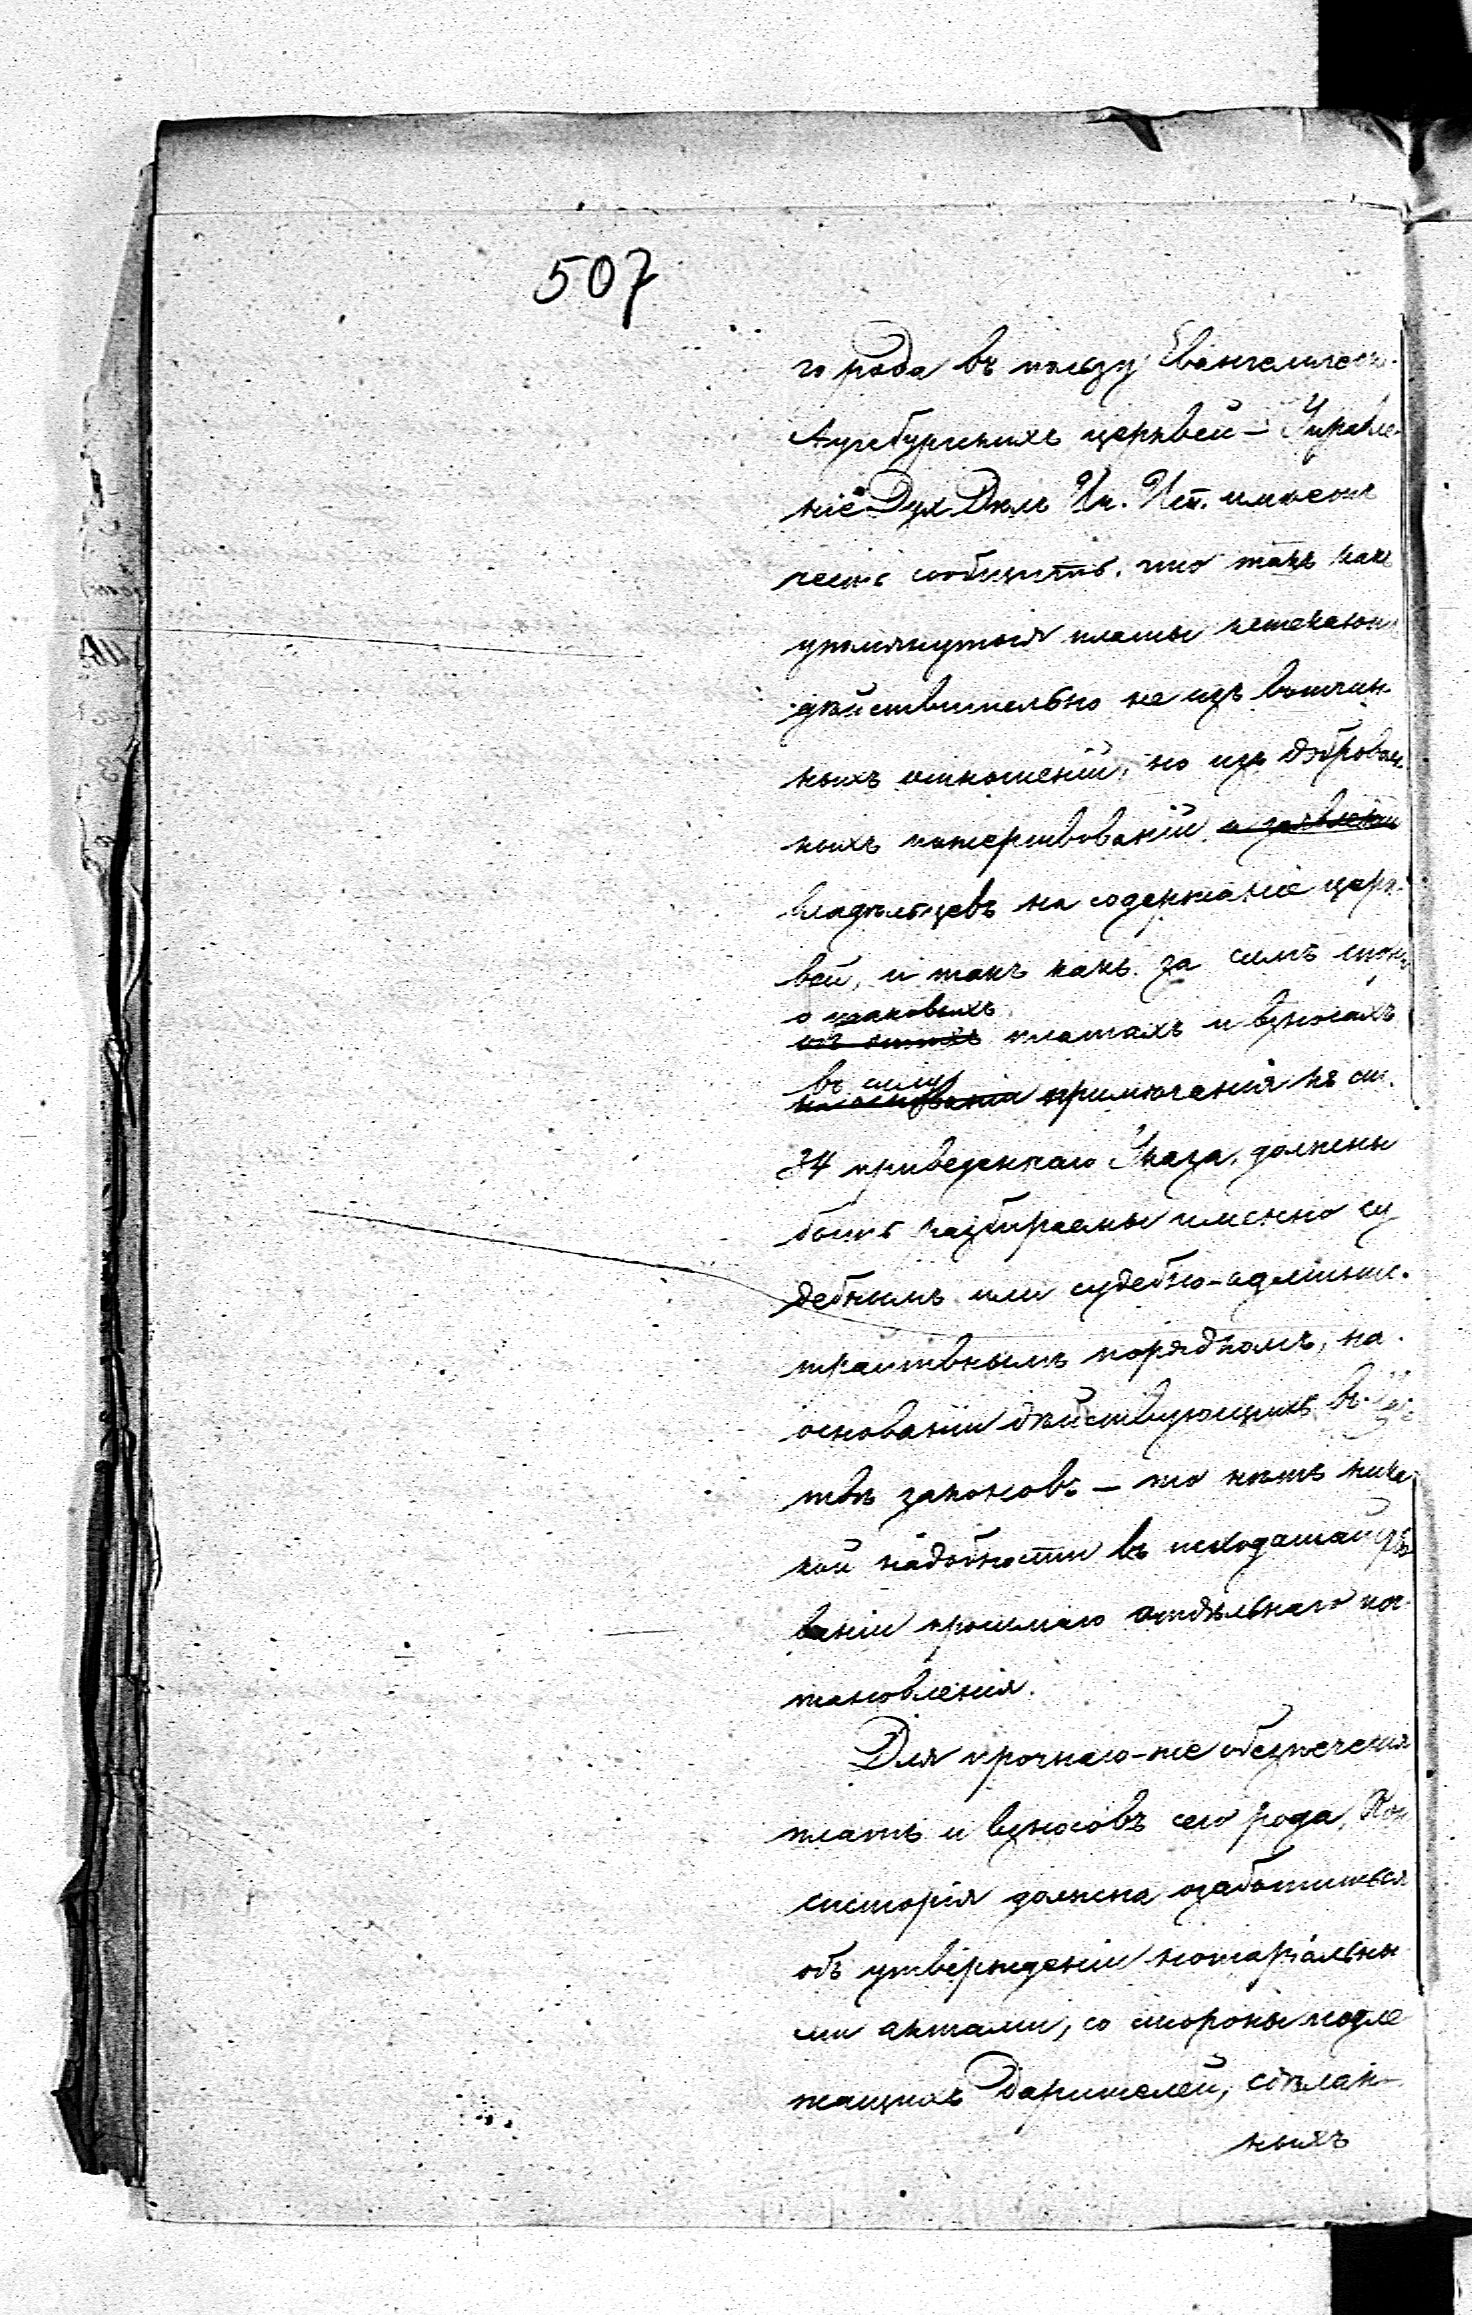 507
го рода въ пользу Евангелическ-
Аугсбургскихъ церквей – Управле-
ніе Дух. Дѣлъ Ин. Исп. имѣетъ
честь сообщить, что такъ какъ
упомянутыя платы истекаютъ
дѣйствительно не изъ вотчин-
ныхъ отношеній, но изъ добровол.
ныхъ пожертвованій и заявленій
владѣльцевъ на содержаніе церк-
вей, и такъ какъ за симъ споры
о таковыхъ
объ этихъ платахъ и взносахъ
въ силу
на основаніи примѣчанія къ ст.
34 приведеннаго Указа, должны
быть разбираемы именно су
дебнымъ или судебно-админис-
тративнымъ порядкомъ, на
основаніи дѣйствующихъ въ
твѣ законовъ – то нѣтъ ника
кой надобности въ исходатайство
ваніи просимаго отдѣльнаго пос
тановленія.
Для прочнаго-же обезпеченія
платъ и взносовъ сего рода, Кон
систорія должна озаботиться
объ утвержденіи нотаріальны
ми актами, со стороны подле
жащихъ дарителей, сдѣлан-
ныхъ